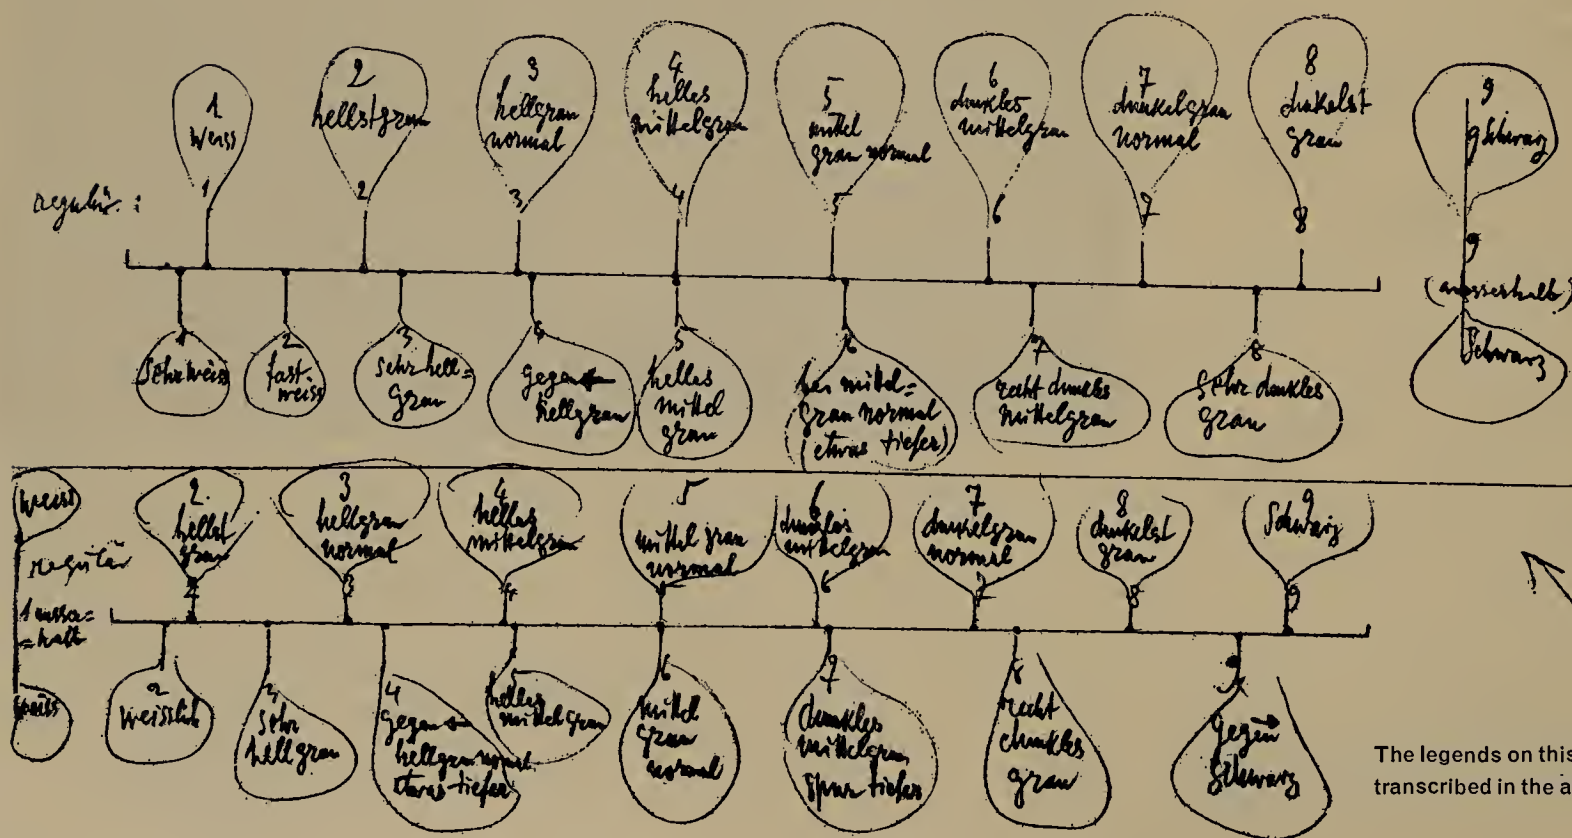 regulär:
1
weiss
1
2
hellstgrau
2
3
hellgrau
normal
3
4
helles
mittelgrau
4
5
mittel
grau normal
5
6
dunkles
mittelgrau
6
7
dunkelgrau
normal
7
8
dunkelst
grau
8
9
9 Schwarz
9
(ausserhalb)
Schwarz
1
Sehr weiss
2
fast-
weiss
3
sehr hell=
grau
4
gegen
hellgrau
5
helles
mittel
grau
6
mittel=
grau normal
(etwas tiefer)
7
recht dunkles
mittelgrau
8
sehr dunkles
grau
weiss
regulär
1 ausser=
=halb
weiss
2.
hellst
grau
2
3
hellgrau
normal
3
4
helles
mittelgrau
4
5
mittel grau
normal
5
6
dunkles
mittelgrau
6
7
dunkelgrau
normal
7
8
dunkelst
grau
8
9
Schwarz
9
2
weisslich
3
sehr
hellgrau
4
gegen
hellgrau normal
etwas tiefer
5
helles
mittelgrau
6
mittel
grau
normal
7
dunkles
mittelgrau
Spur tiefer
8
recht
dunkles
grau
9
gegen
Schwarz
The legends on this
transcribed in the a